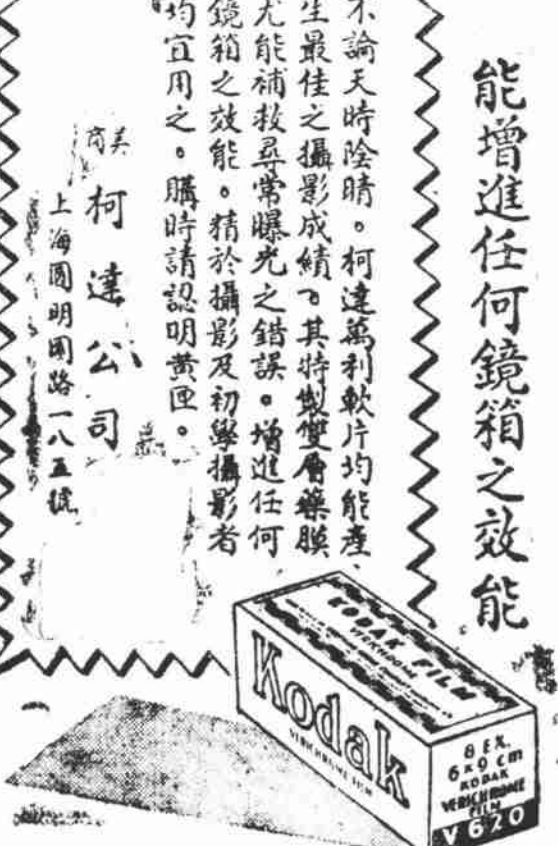 能增進任何鏡箱之效能
不論天時陰晴。柯達萬利軟片均能產
生最佳之攝影成績。其特製雙層藥膜
尤能補救尋常曝光之錯誤。增進任何
鏡箱之效能。精於攝影及初學攝影者
均宜用之。購時請認明黃匣。
美商
柯達公司
上海圓明園路一八五號
KODAK FILM
VERICHROME
Kodak
VERICHROME FILM
8 EX.
6 x 9 cm
KODAK
VERICHROME
FILM
V 620